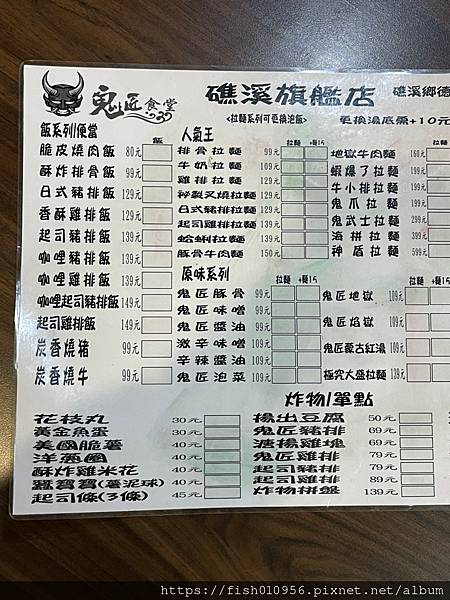 鬼匠食堂
礁溪旗艦店 礁溪鄉德
<拉麵系列可更換泡飯> 更換湯底需+10元
飯系列/便當 飯
脆皮燒肉飯 80元
酥炸排骨飯 99元
日式豬排飯 129元
香酥雞排飯 129元
起司豬排飯 139元
咖哩豬排飯 139元
咖哩雞排飯 139元
咖哩起司豬排飯 149元
起司雞排飯 149元
炭香燒豬 99元
炭香燒牛 99元
人氣王 拉麵 +麵15
排骨拉麵 99元
牛奶拉麵 109元
雞排拉麵 129元
祕製叉燒拉麵 129元
日式豬排拉麵 129元
起司雞排拉麵 139元
蛤蜊拉麵 139元
豚骨牛肉麵 150元
原味系列 拉麵 +麵15
鬼匠豚骨 99元
鬼匠味噌 99元
鬼匠醬油 99元
激辛味噌 109元
辛辣醬油 109元
鬼匠泡菜 109元
拉麵 +麵
地獄牛肉麵 160元
蝦爆了拉麵 199元
牛小排拉麵 199元
鬼爪拉麵 199元
鬼武士拉麵 299元
海拼拉麵 399元
神盾拉麵 599元
拉麵 +麵15
鬼匠地獄 109元
鬼匠焰獄 109元
鬼匠蒙古紅湯 109元
極究大盛拉麵 139元
炸物/單點
花枝丸 30元
黃金魚蛋 30元
美國脆薯 40元
洋蔥圈 40元
酥炸雞米花 40元
蠶寶寶(薯泥球) 40元
起司條(3條) 45元
揚出豆腐 50元
鬼匠豬排 69元
溏揚雞塊 69元
鬼匠雞排 79元
起司豬排 79元
起司雞排 89元
炸物拼盤 139元
https://fish010956.pixnet.net/album